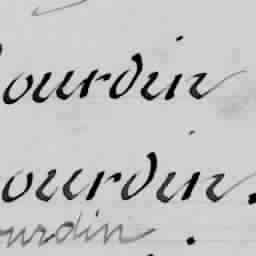 ourdin
ourdin.
ourdin